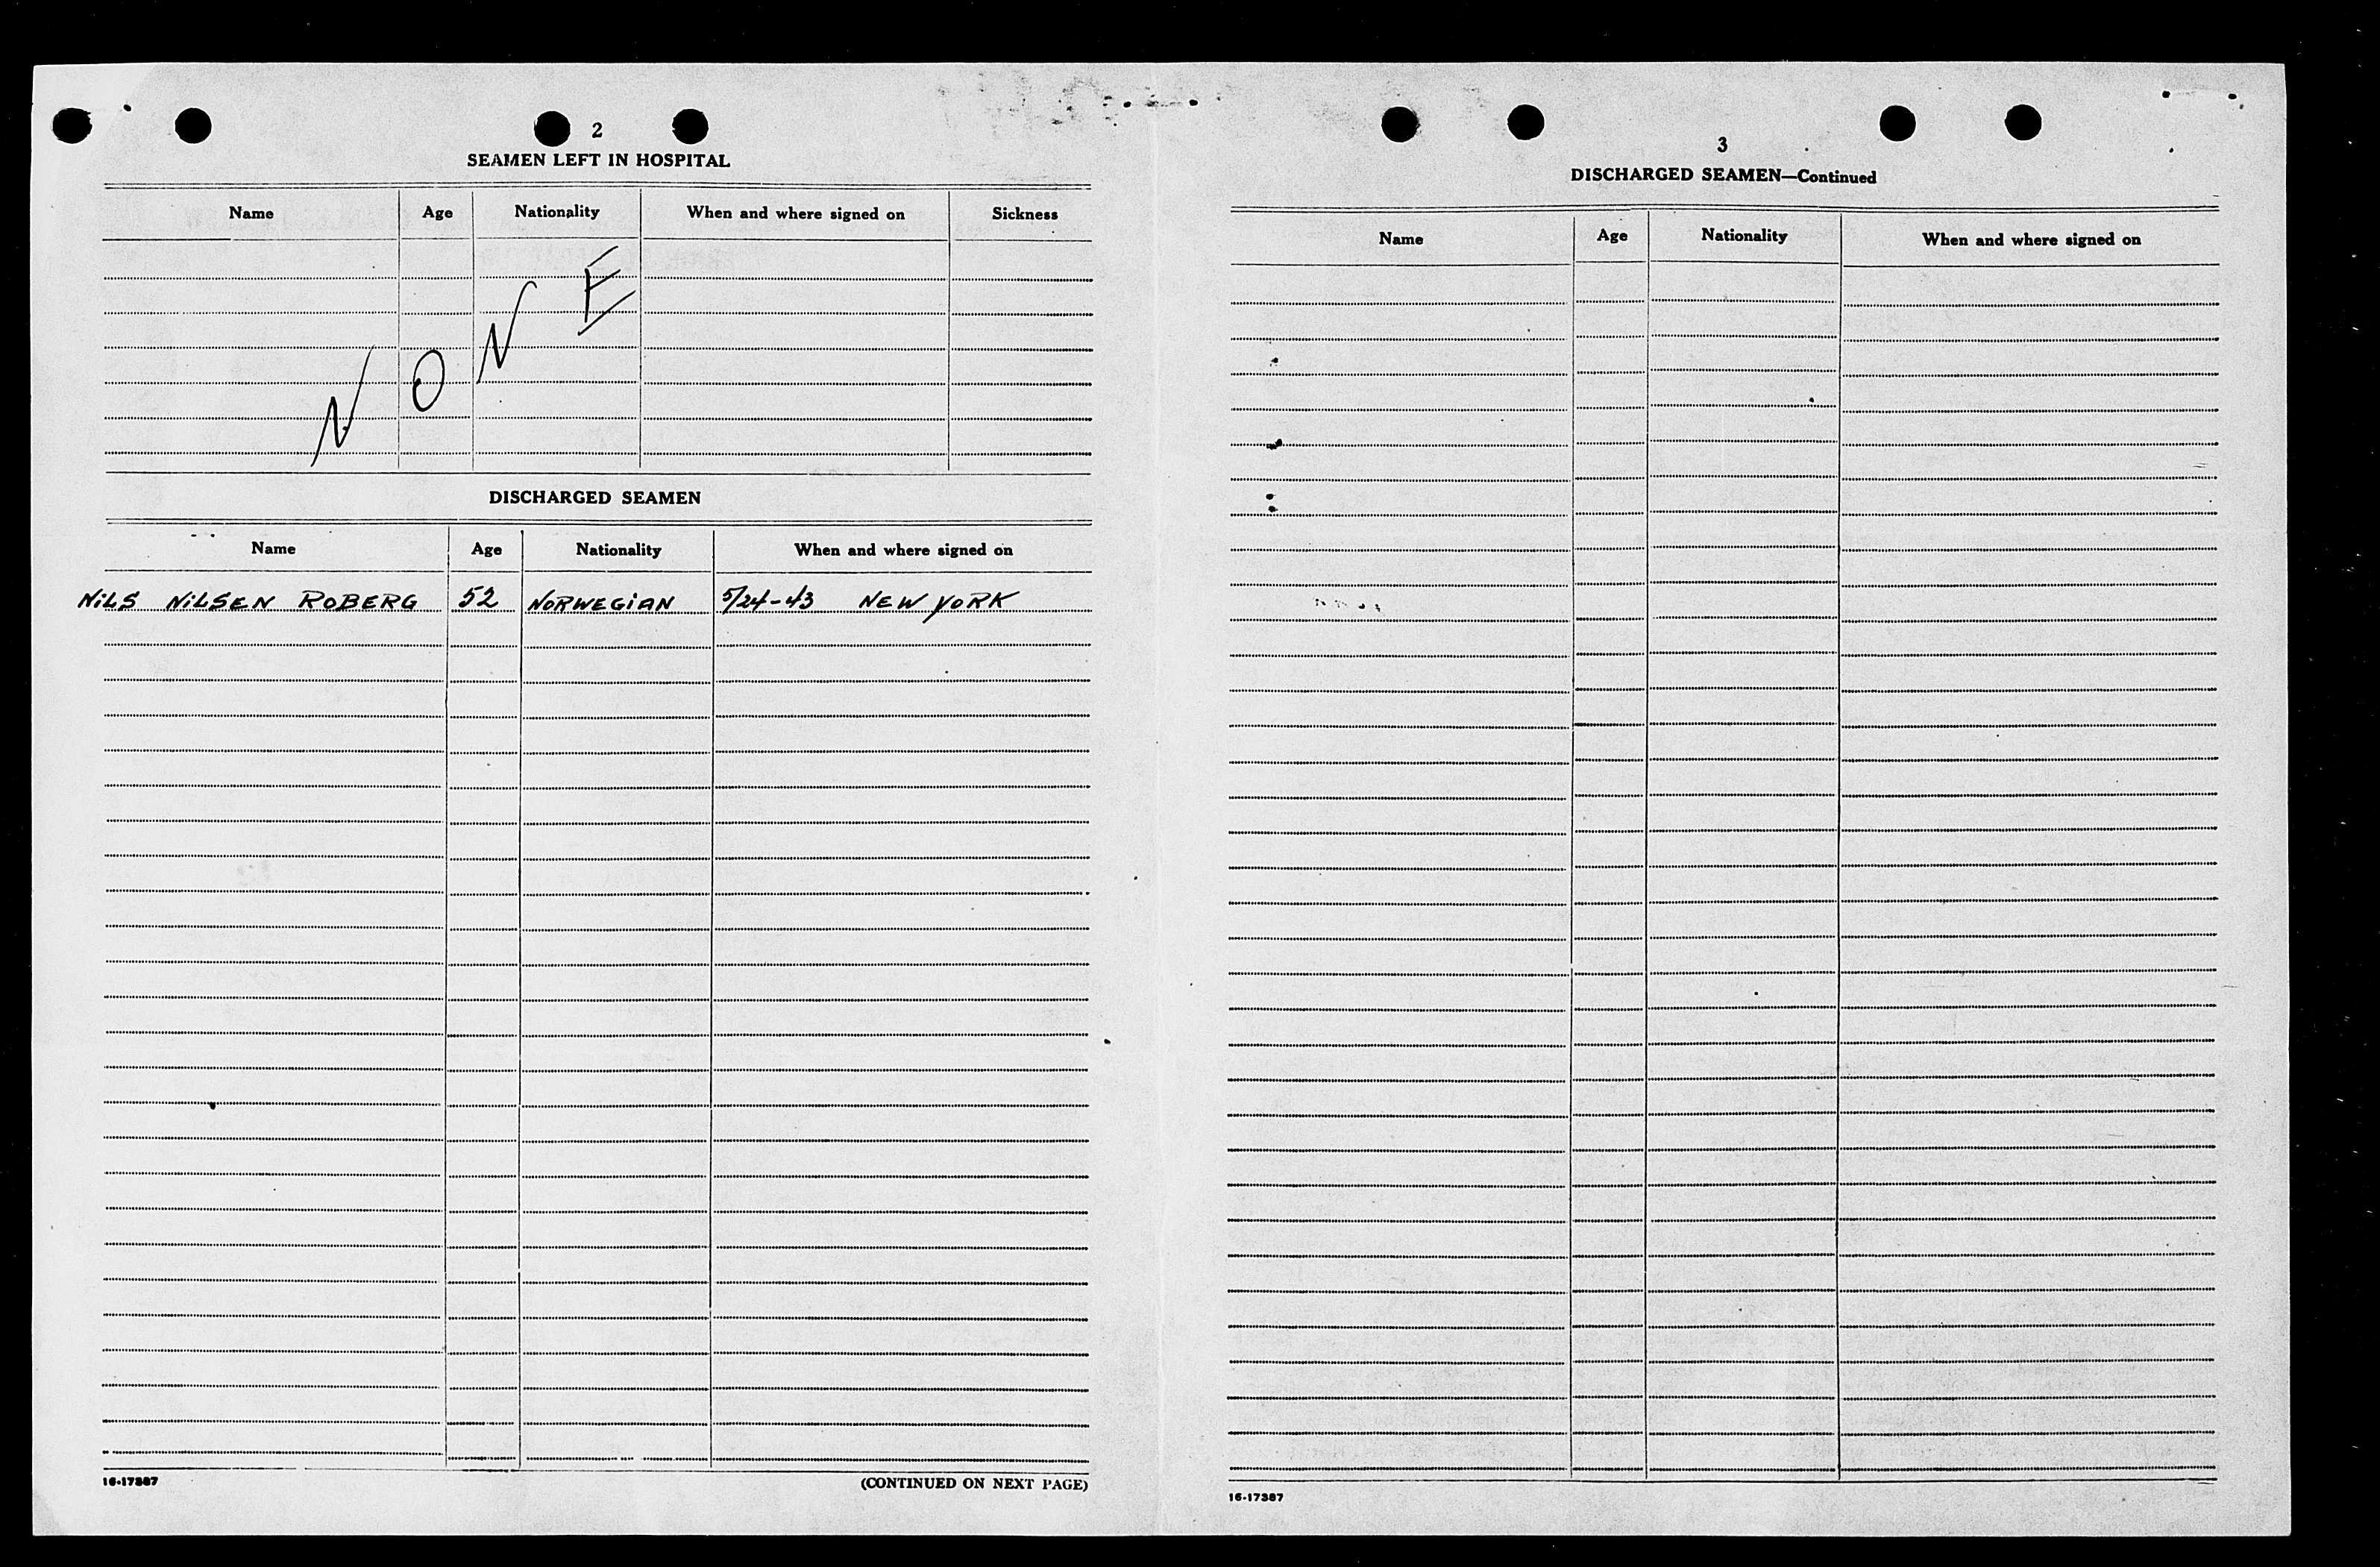 2
SEAMEN LEFT IN HOSPITAL
Name Age Nationality When and where signed on Sickness
NONE
DISCHARGED SEAMEN
Name Age Nationality When and where signed on
NiLS NiLSEN ROBERG 52 NORWEGiAN 5/24-43 NEW YORK
16-17387
(CONTINUED ON NEXT PAGE)
3
DISCHARGED SEAMEN—Continued
Name Age Nationality When and where signed on
16-17387